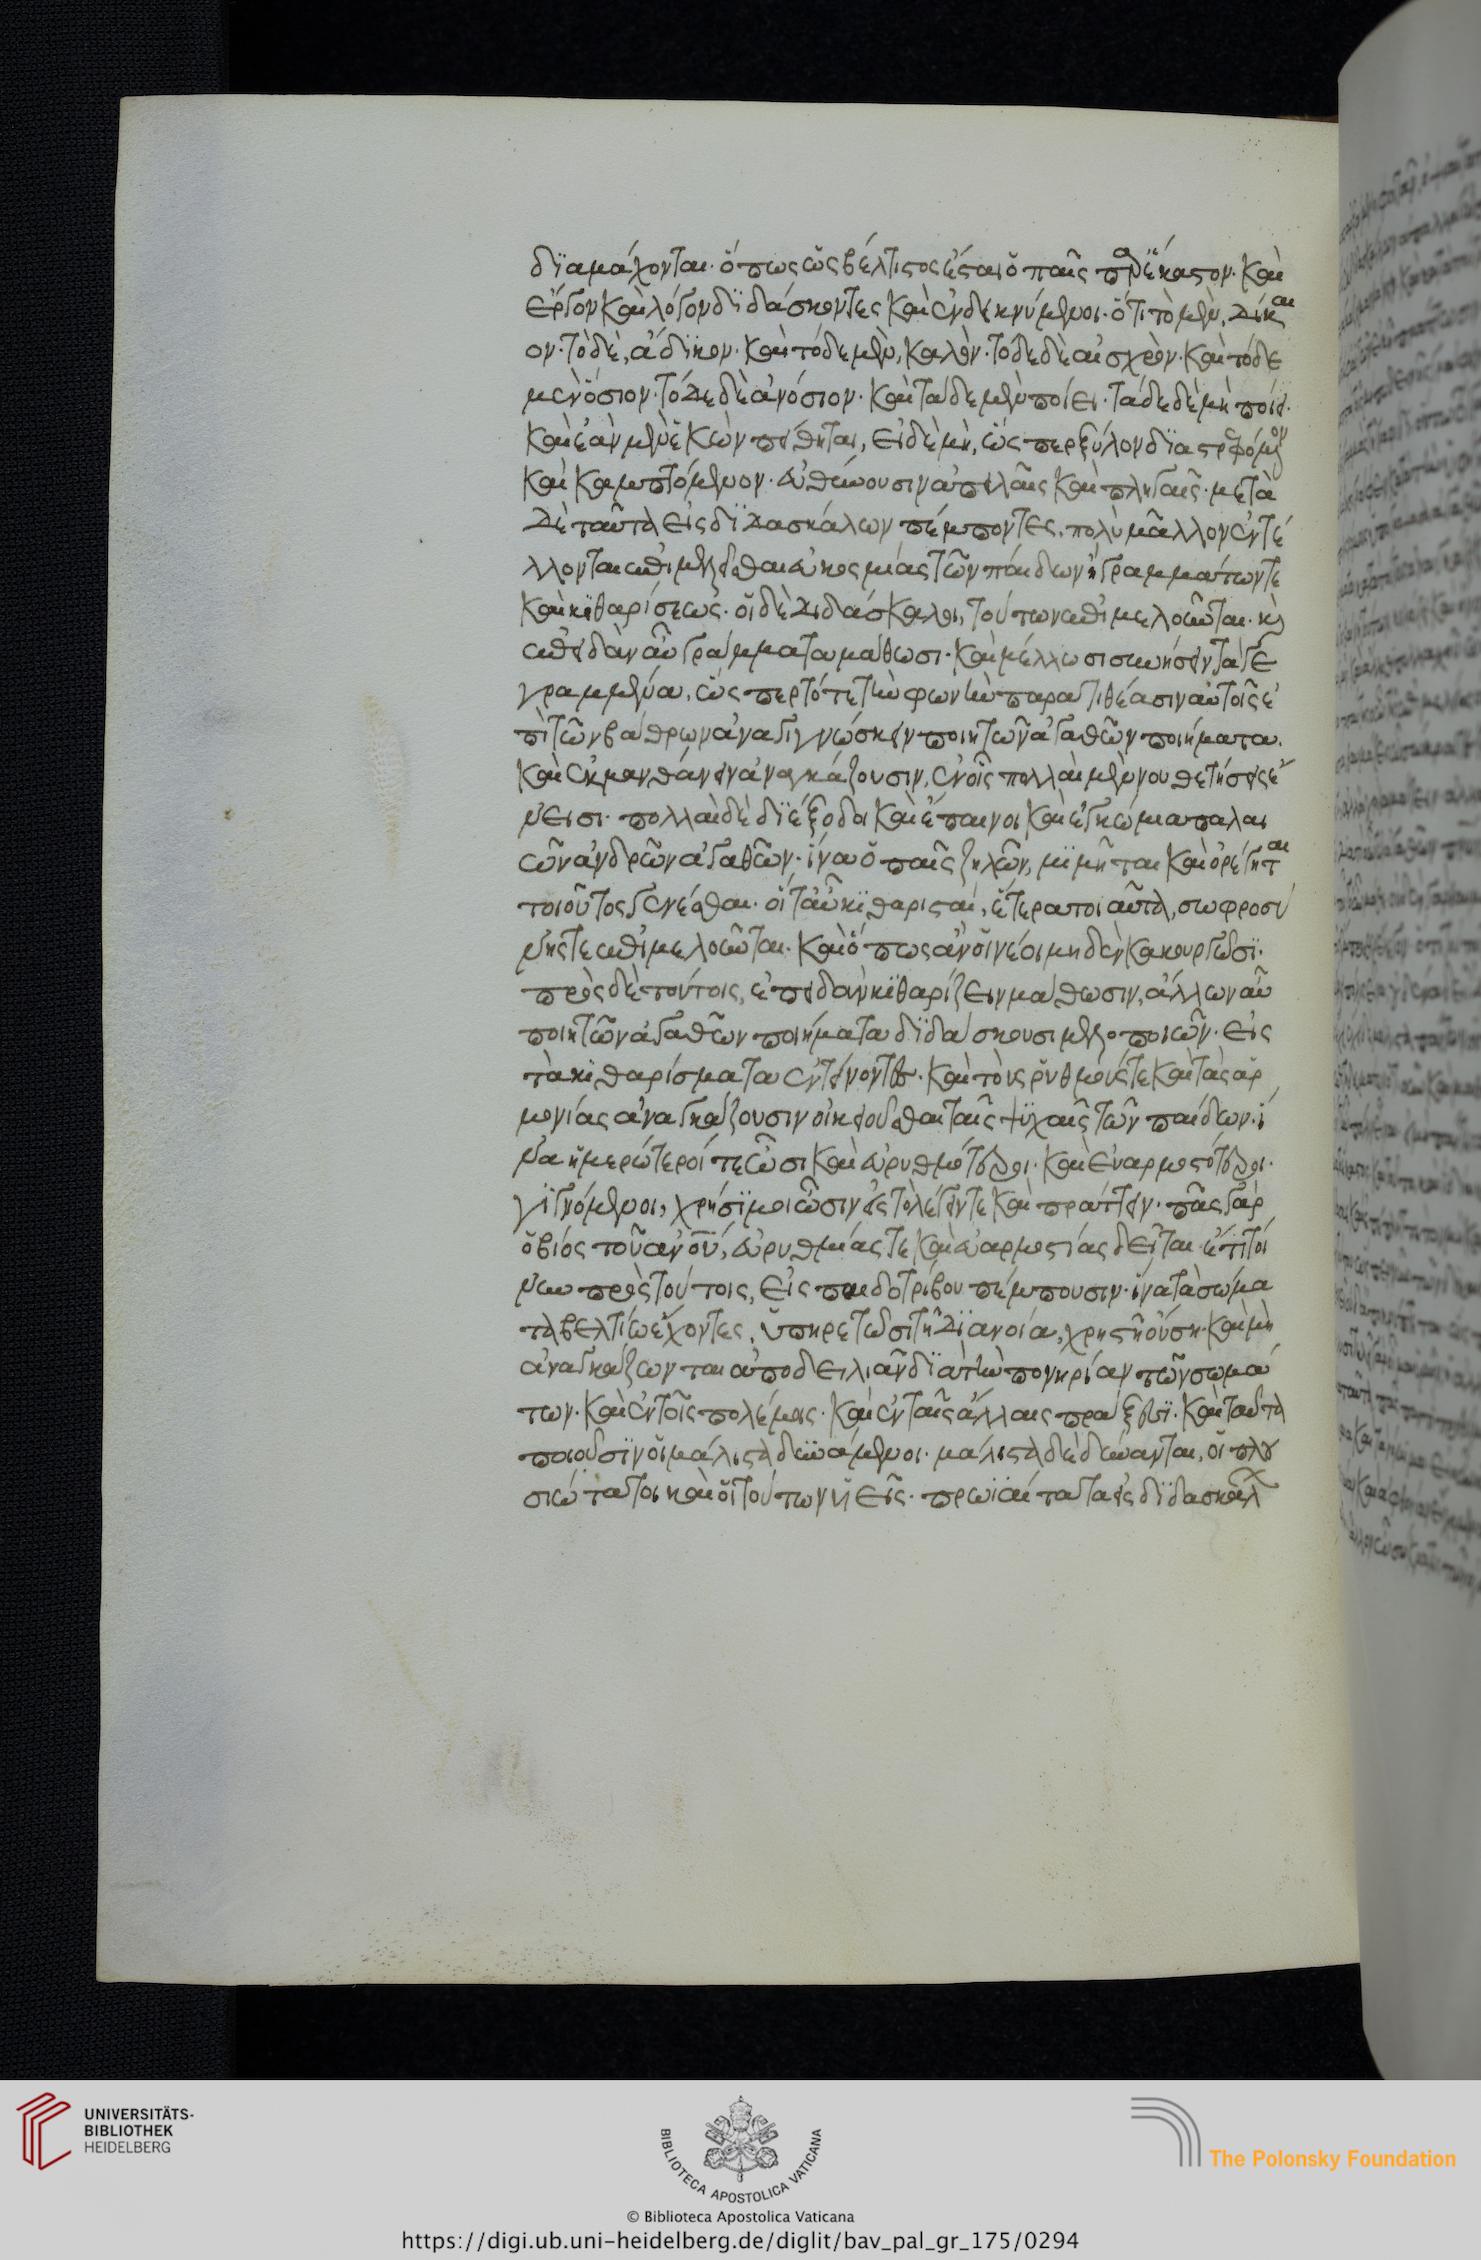 διαμάχονται. ὅπως ὡς βέλτιστος ἔσται ὁ παῖς παρ ἕκαστον. καὶ
ἔργον καὶ λόγον διδάσκοντες καὶ ἐνδεικνύμενοι. ὅτι τὸ μὲν, δίκαι
ον. τὸ δὲ, ἄδικον. καὶ τόδε μὲν, καλὸν. τόδε δὲ αἰσχρὸν. καὶ τόδε
μὲν ὅσιον. τόδε δὲ ἀνόσιον. καὶ τάδε μὲν ποίει. τάδε δὲ μὴ ποίει.
καὶ ἐὰν μὲν ἑκὼν πείθηται, εἰ δὲ μὴ, ὥσπερ ξύλον διαστρεφόμενον
καὶ καμπτόμενον. εὐθύνουσιν ἀπειλαῖς καὶ πληγαῖς. μετὰ
δὲ ταῦτα εἰς διδασκάλων πέμποντες, πολὺ μᾶλλον ἐντέ
λλονται ἐπιμελεῖσθαι εὐκοσμίας τῶν παίδων ἢ γραμμάτων τε
καὶ κιθαρίσεως. οἱ δὲ διδάσκαλοι, τούτων ἐπιμελοῦνται. κὶ
ἐπειδὰν αὖ γράμματα μάθωσι. καὶ μέλλωσι συνήσειν τὰ γε
γραμμένα, ὥσπερ τότε τὴν φωνὴν παρατιθέασιν αὐτοῖς ἐ
πὶ τῶν βάθρων ἀναγιγνώσκειν ποιητῶν ἀγαθῶν ποιήματα.
καὶ ἐκμανθάνειν ἀναγκάζουσιν, ἐν οἷς πολλαὶ μὲν νουθετήσεις ἔ
νεισι. πολλαὶ δὲ διέξοδοι καὶ ἔπαινοι καὶ ἐγκώμια παλαι
ῶν ἀνδρῶν ἀγαθῶν. ἵνα ὁ παῖς ζηλῶν, μιμῆται καὶ ὀρέγηται
τοιοῦτος γενέσθαι. οἵ τ' αὖ κιθαρισταὶ, ἕτερα τοιαῦτα, σωφροσύ
νης τε ἐπιμελοῦνται. καὶ ὅπως ἂν οἱ νέοι μηδὲν κακουργῶσι.
πρὸς δὲ τούτοις, ἐπειδὰν κιθαρίζειν μάθωσιν, ἄλλων αὖ
ποιητῶν ἀγαθῶν ποιήματα διδάσκουσι μελοποιῶν. εἰς
τὰ κιθαρίσματα ἐντείνοντες. καὶ τοὺς ῥυθμούς τε καὶ τὰς ἁρ
μονίας ἀναγκάζουσιν οἰκειοῦσθαι ταῖς ψυχαῖς τῶν παίδων. ἵ
να ἡμερώτεροί τε ὦσι καὶ εὐρυθμότεροι. καὶ εὐαρμοστότεροι.
γιγνόμενοι, χρήσιμοι ὦσιν εἰς τὸ λέγειν τε καὶ πράττειν. πᾶς γὰρ
ὁ βίος τοῦ ἀνου, εὐρυθμίας τε καὶ εὐαρμοστίας δεῖται. ἔτι τοί
νυν πρὸς τούτοις, εἰς παιδοτρίβου πέμπουσιν. ἵνα τὰ σώμα
τα βελτίω ἔχοντες, ὑπηρετῶσι τῇ διανοίᾳ, χρηστῇ οὔσῃ. καὶ μὴ
ἀναγκάζωνται ἀποδειλιᾶν διὰ τὴν πονηρίαν τῶν σωμά
των. καὶ ἐν τοῖς πολέμοις. καὶ ἐν ταῖς ἄλλαις πράξεσι. καὶ ταῦτα
ποιοῦσιν οἱ μάλιστα δυνάμενοι. μάλιστα δὲ δύνανται, οἱ πλου
σιώτατοι καὶ οἱ τούτων ὑεῖς. πρωϊαίτατα εἰς διδασκάλων
UNIVERSITÄTS-
BIBLIOTHEK
HEIDELBERG
BIBLIOTECA APOSTOLICA VATICANA
The Polonsky Foundation
© Biblioteca Apostolica Vaticana
https://digi.ub.uni-heidelberg.de/diglit/bav_pal_gr_175/0294